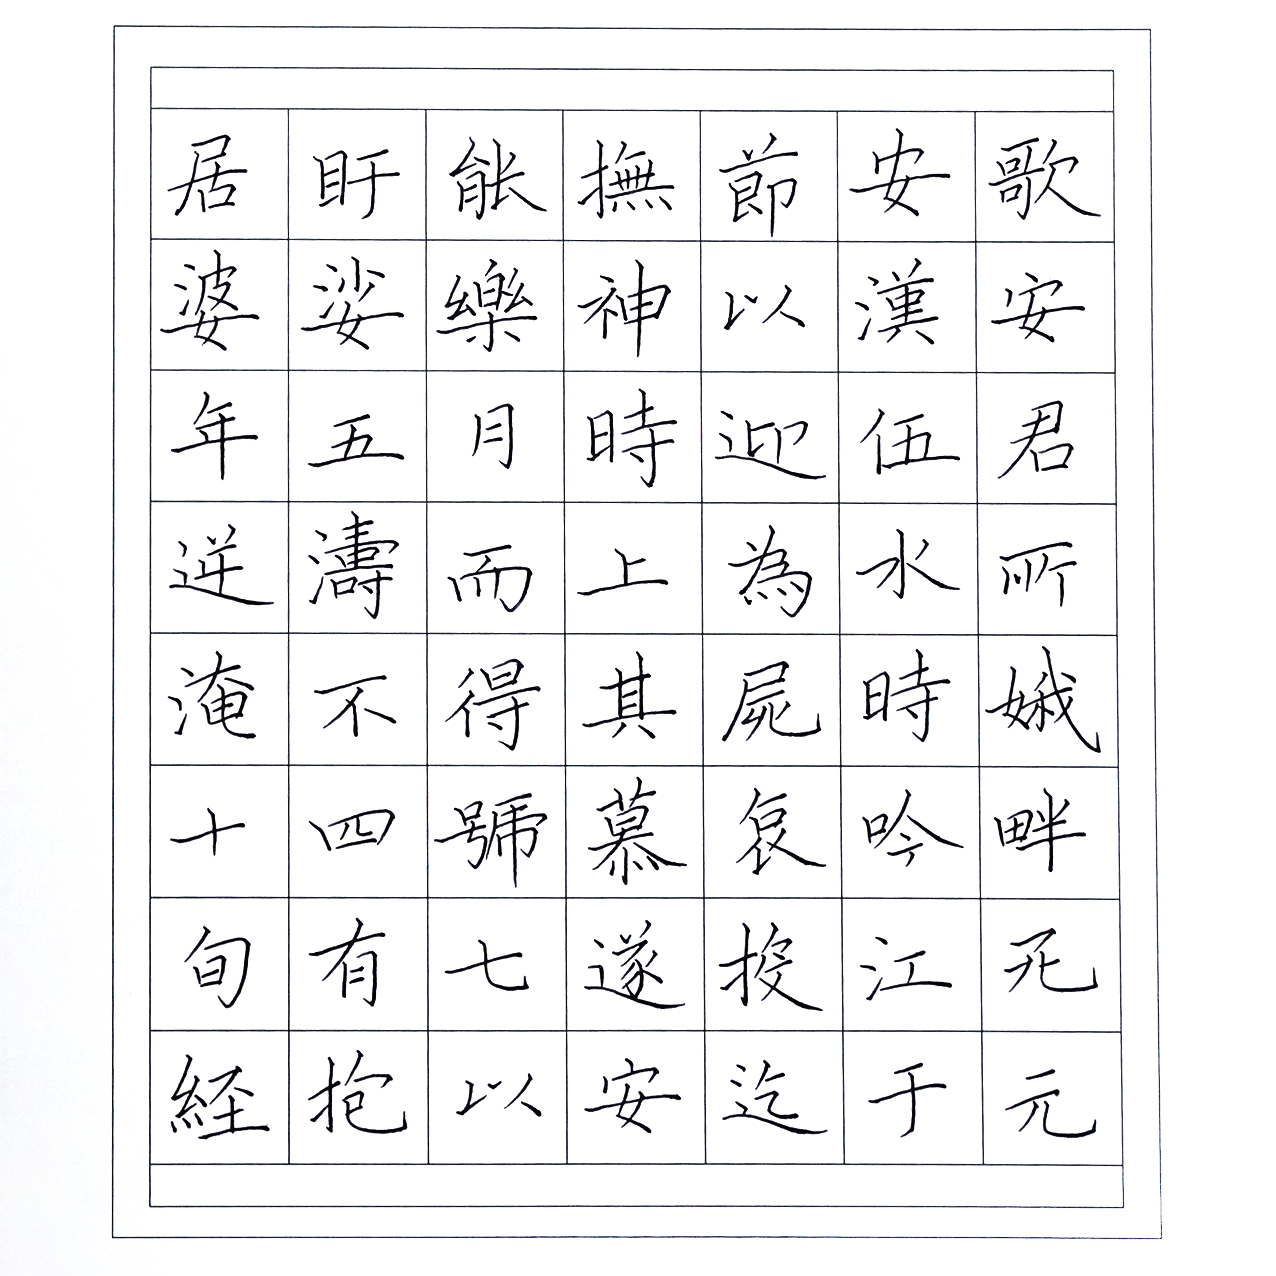 居盱能撫節安歌
婆娑樂神以漢安
年五月時迎伍君
逆濤而上為水所
淹不得其屍時娥
十四號慕哀吟畔
旬有七遂投江死
経抱以安迄于元